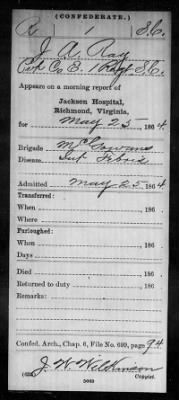 (CONFEDERATE.)
R 1 S.C.
J. A. Ray
Co. B. 1 Regt S.C.
Appears on a morning report of
Jackson Hospital,
Richmond, Virginia,
for May 25, 1864.
Brigade McGowans
Disease Int Febris
Admitted May 25, 1864
Transferred:
When , 186 .
Where
Furloughed:
When , 186 .
Days
Died , 186 .
Returned to duty , 186 .
Remarks:
Confed. Arch., Chap. 6, File No. 699, page 94
J. W. Wilkinson
Copyist.